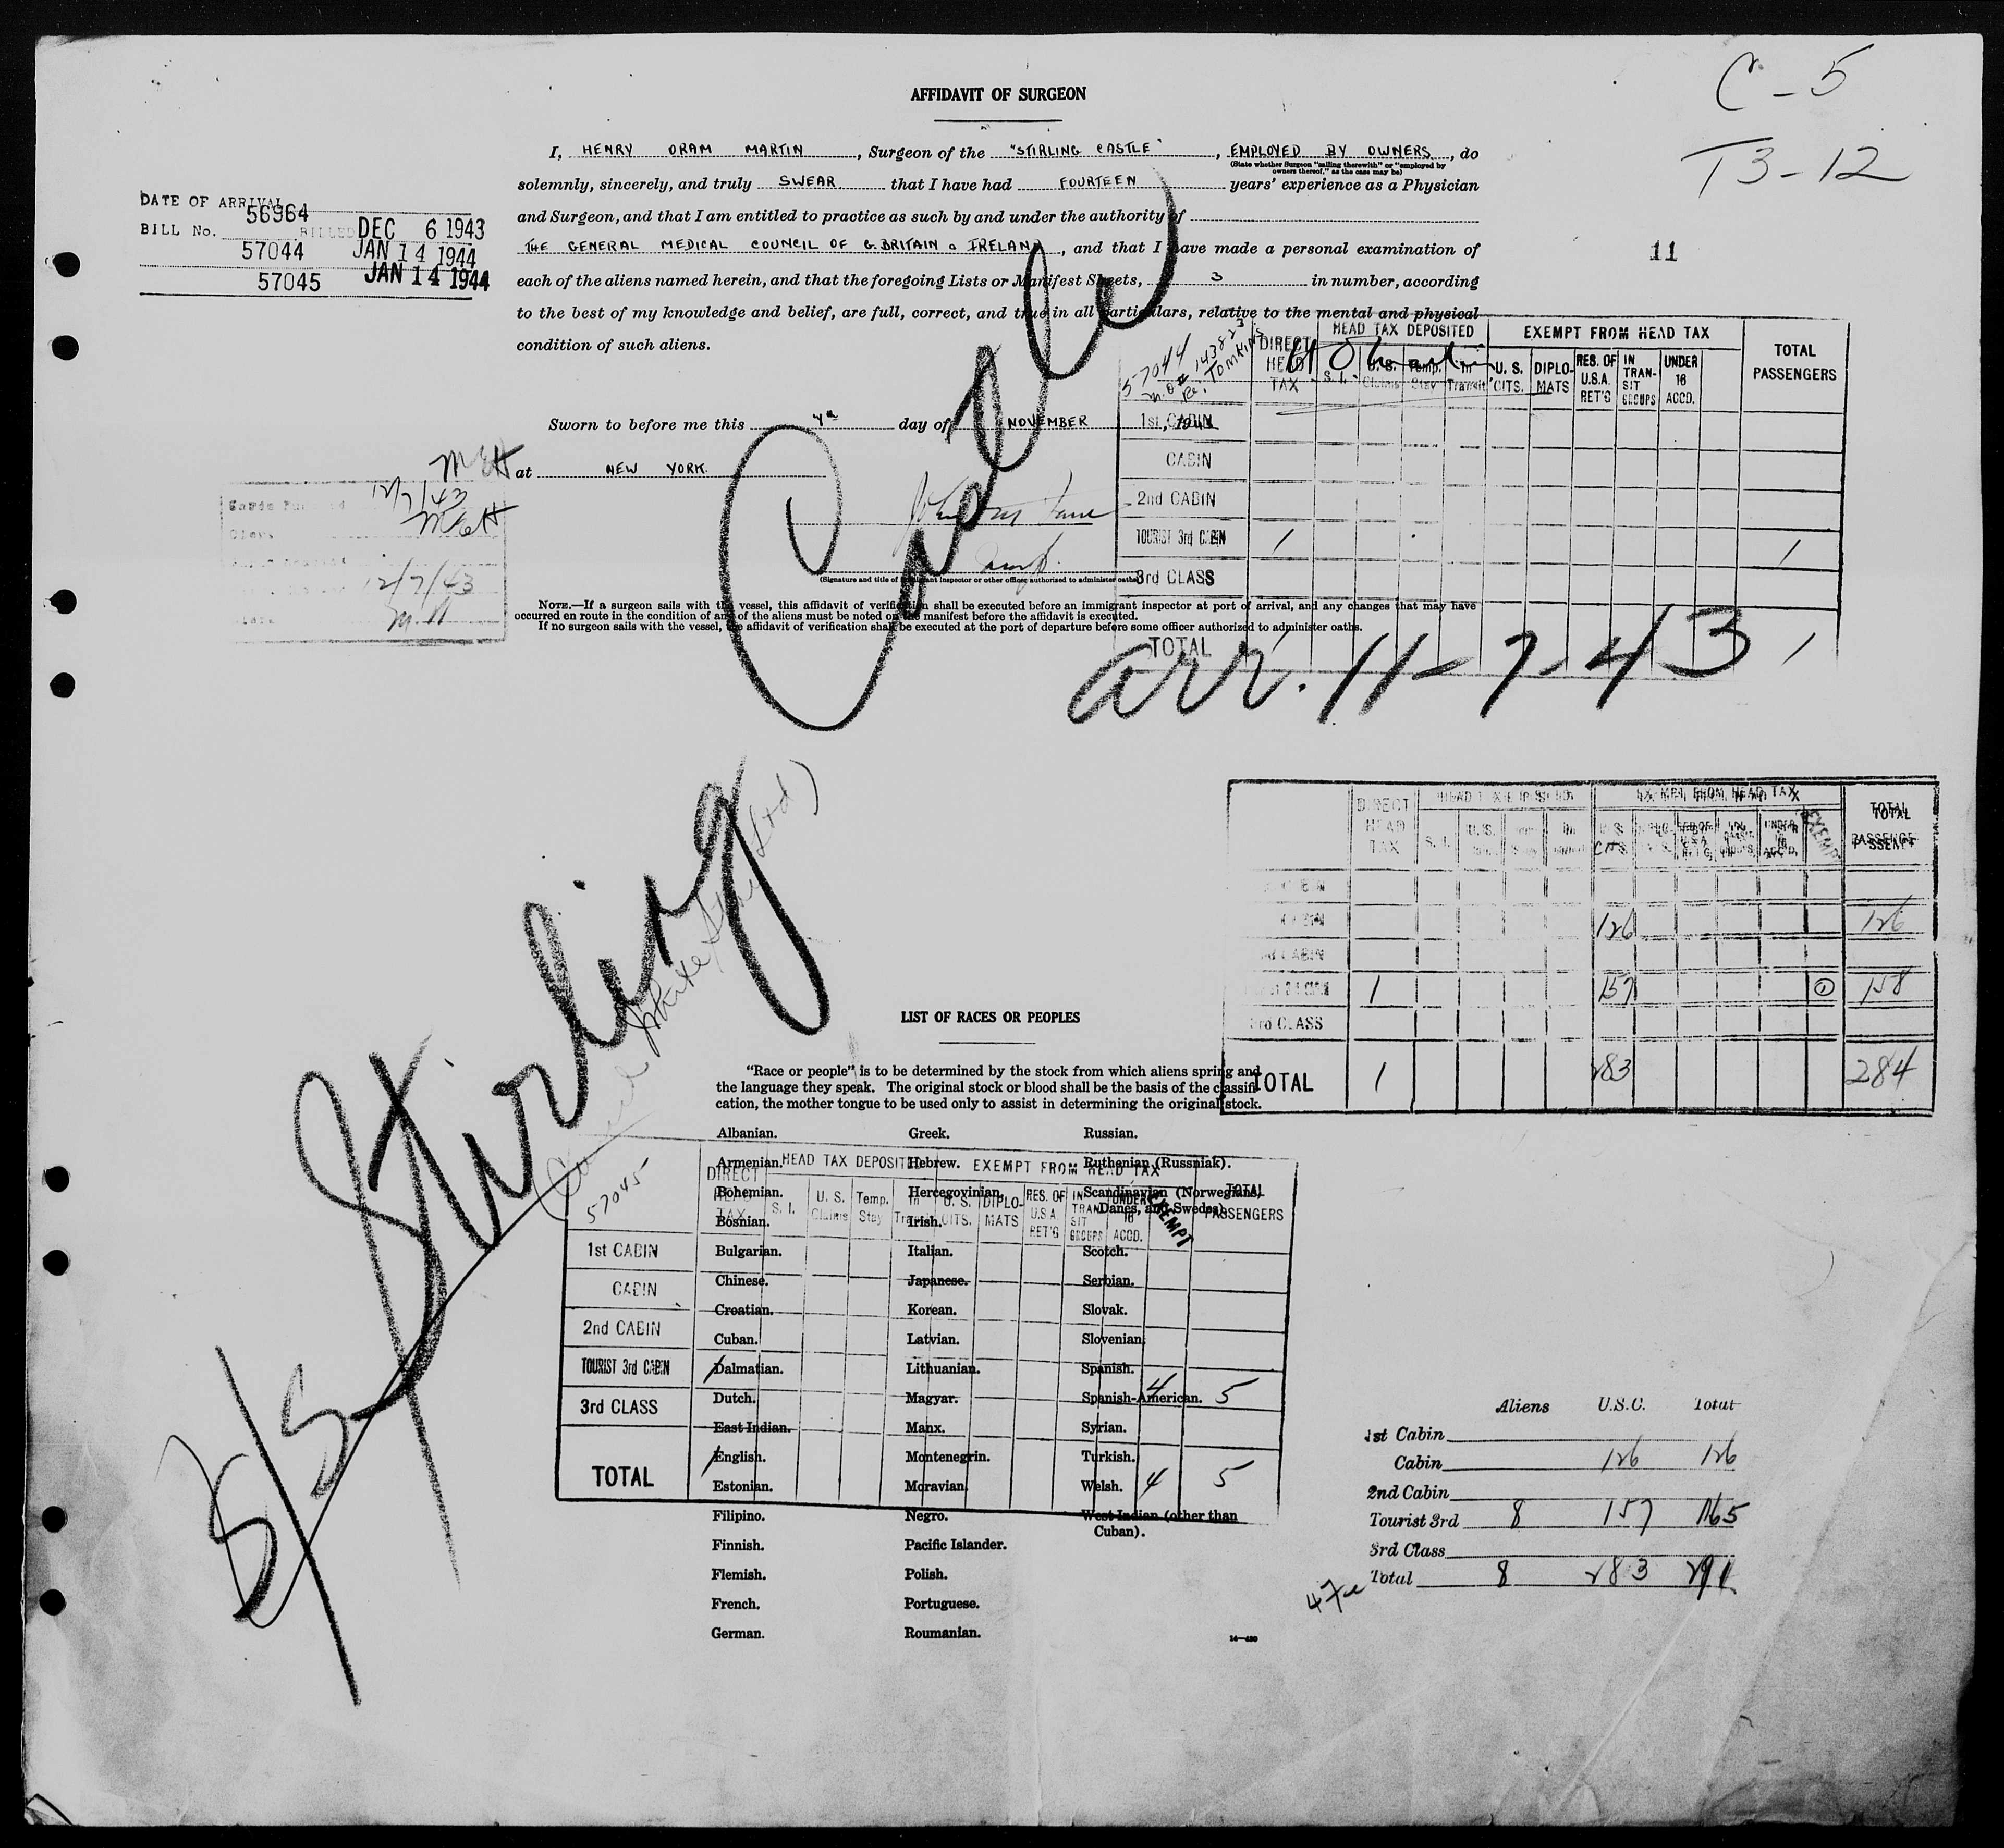 C-5
T3-12
11
AFFIDAVIT OF SURGEON
I, HENRY ORAM MARTIN, Surgeon of the "STIRLING CASTLE", EMPLOYED BY OWNERS, do
(State whether Surgeon "sailing therewith" or "employed by
owners thereof," as the case may be)
solemnly, sincerely, and truly SWEAR that I have had FOURTEEN years' experience as a Physician
and Surgeon, and that I am entitled to practice as such by and under the authority of
THE GENERAL MEDICAL COUNCIL OF G. BRITAIN & IRELAND, and that I have made a personal examination of
each of the aliens named herein, and that the foregoing Lists or Manifest Sheets, 3 in number, according
to the best of my knowledge and belief, are full, correct, and true in all particulars, relative to the mental and physical
condition of such aliens.
DATE OF ARRIVAL
56964
BILL No. BILLED DEC 6 1943
57044 JAN 14 1944
57045 JAN 14 1944
Sworn to before me this day of NOVEMBER
at NEW YORK.
12/7/43
12/7/43
(Signature and title of immigrant inspector or other officer authorized to administer oaths)
NOTE.—If a surgeon sails with the vessel, this affidavit of verification shall be executed before an immigrant inspector at port of arrival, and any changes that may have
occurred en route in the condition of any of the aliens must be noted on the manifest before the affidavit is executed.
If no surgeon sails with the vessel, the affidavit of verification shall be executed at the port of departure before some officer authorized to administer oaths.
57044
Re: Tomkins
DIRECT HEAD TAX HEAD TAX DEPOSITED EXEMPT FROM HEAD TAX TOTAL PASSENGERS
S. I. U. S. Claims Temp. Stay In Transit U. S. CITS. DIPLO-MATS RES. OF U.S.A. RET'G IN TRAN-SIT GROUPS UNDER 16 ACCD.
1st CABIN
CABIN
2nd CABIN
TOURIST 3rd CABIN 1 1
3rd CLASS
TOTAL 1 1
arr. 11-7-43
S/S Stirling Castle
DIRECT HEAD TAX EXEMPT FROM HEAD TAX EXEMPT TOTAL
126 126
1 157 1 158
3rd CLASS
TOTAL 1 283 284
LIST OF RACES OR PEOPLES
"Race or people" is to be determined by the stock from which aliens spring and
the language they speak. The original stock or blood shall be the basis of the classifi-
cation, the mother tongue to be used only to assist in determining the original stock.
Albanian. Greek. Russian.
Armenian. Hebrew. Ruthenian (Russniak).
Bohemian. Hercegovinian. Scandinavian (Norwegians,
Bosnian. Irish. Danes, and Swedes).
Bulgarian. Italian. Scotch.
Chinese. Japanese. Serbian.
Croatian. Korean. Slovak.
Cuban. Latvian. Slovenian.
Dalmatian. Lithuanian. Spanish.
Dutch. Magyar. Spanish-American.
East Indian. Manx. Syrian.
English. Montenegrin. Turkish.
Estonian. Moravian. Welsh.
Filipino. Negro. West Indian (other than
Cuban).
Finnish. Pacific Islander.
Flemish. Polish.
French. Portuguese.
German. Roumanian.
57045
DIRECT HEAD TAX HEAD TAX DEPOSITED EXEMPT FROM HEAD TAX TOTAL PASSENGERS
S. I. U. S. Claims Temp. Stay In Transit U. S. CITS. DIPLO-MATS RES. OF U.S.A. RET'G IN TRAN-SIT GROUPS UNDER 16 ACCD. EXEMPT
1st CABIN
CABIN
2nd CABIN
TOURIST 3rd CABIN 1 4 5
3rd CLASS
TOTAL 1 4 5
Aliens U.S.C. Total
1st Cabin
Cabin 126 126
2nd Cabin
Tourist 3rd 8 157 165
3rd Class
Total 8 283 291